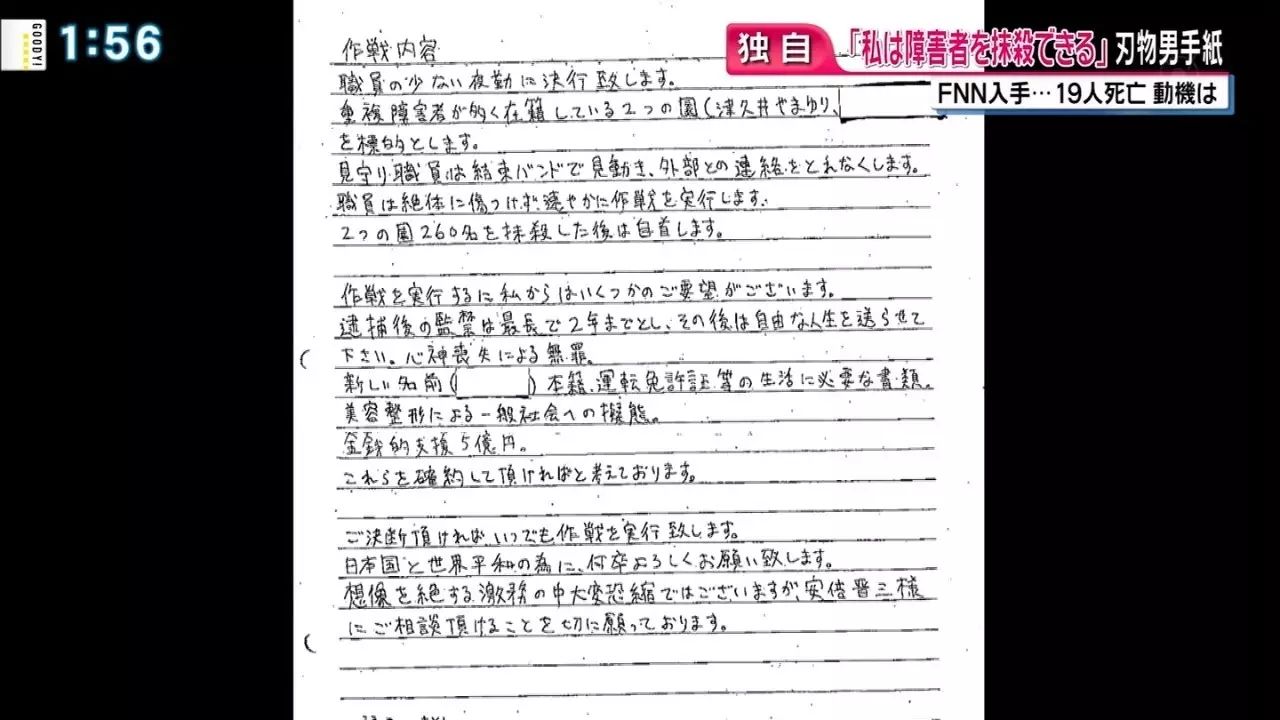 GOODY!
1:56
独自
「私は障害者を抹殺できる」刃物男手紙
FNN入手…19人死亡 動機は
作戦内容
職員の少ない夜勤に決行致します。
重複障害者が多く在籍している2つの園(津久井やまゆり、
を標的とします。
見守り職員は結束バンドで見動き、外部との連絡をとれなくします。
職員は絶体に傷つけず、速やかに作戦を実行します。
2つの園260名を抹殺した後は自首します。
作戦を実行するに私からはいくつかのご要望がございます。
逮捕後の監禁は最長で2年までとし、その後は自由な人生を送らせて
下さい。心神喪失による無罪。
新しい名前( )本籍、運転免許証等の生活に必要な書類。
美容整形による一般社会への擬態。
金銭的支援5億円。
これらを確約して頂ければと考えております。
ご決断頂ければ、いつでも作戦を実行致します。
日本国と世界平和の為に、何卒よろしくお願い致します。
想像を絶する激務の中大変恐縮ではございますが、安倍晋三様
にご相談頂けることを切に願っております。